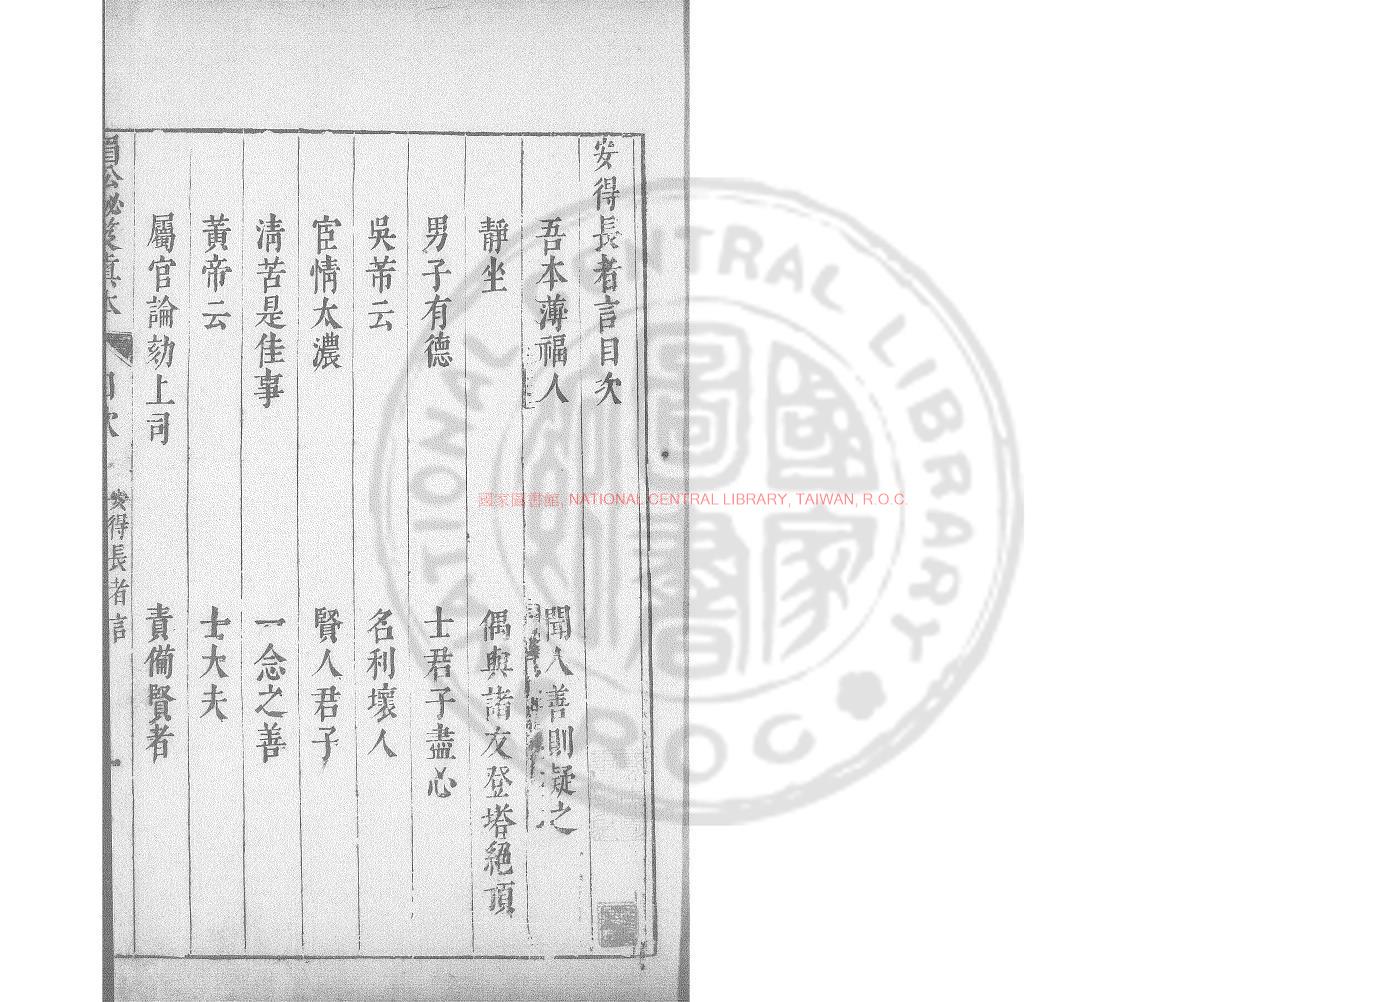 安得長者言目次
吾本薄福人
聞人善則疑之
靜坐
偶與諸友登塔絕頂
男子有德
士君子盡心
吳芾云
名利壞人
宦情太濃
賢人君子
清苦是佳事
一念之善
黃帝云
士大夫
屬官論劾上司
責備賢者
眉公秘笈真本
目次
安得長者言
一
國家圖書館, NATIONAL CENTRAL LIBRARY, TAIWAN, R.O.C.
NATIONAL CENTRAL LIBRARY
R O C
國家圖書